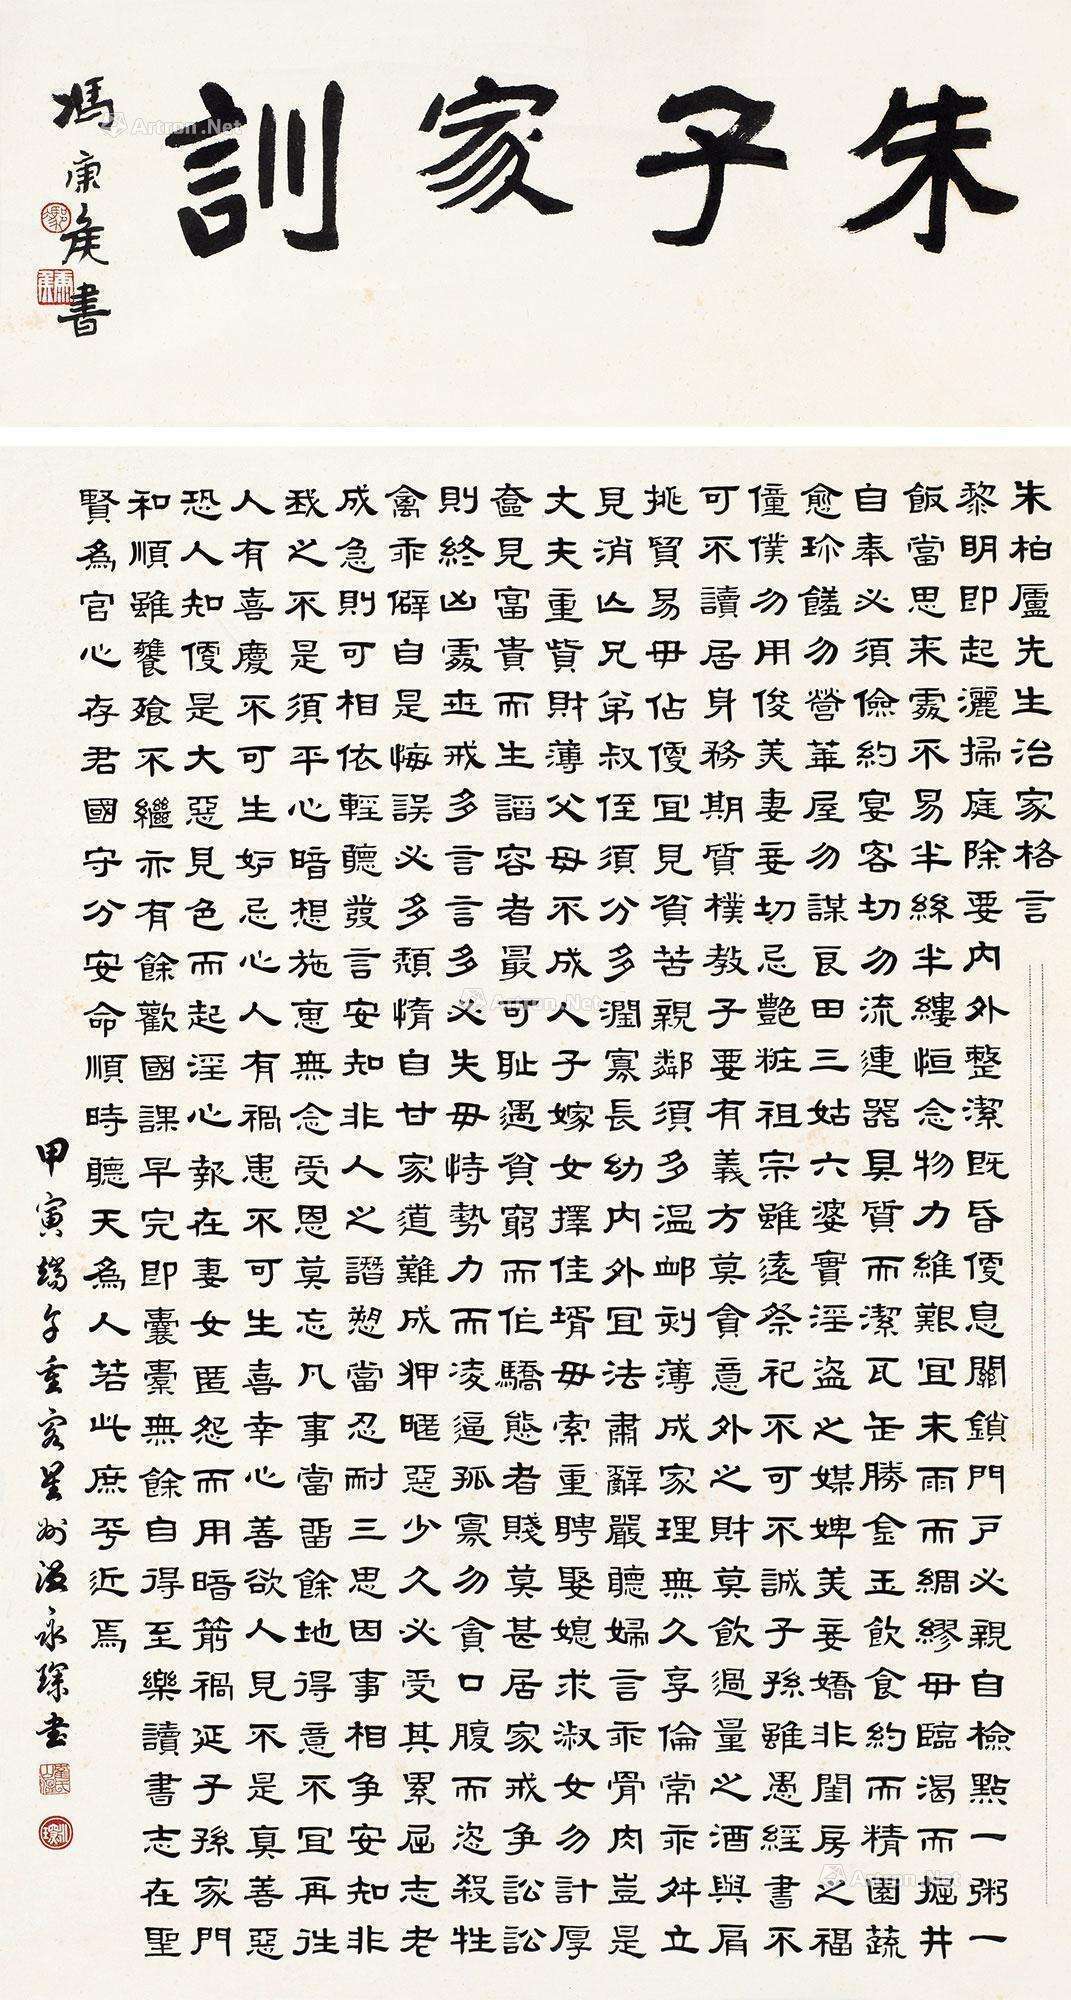 朱子家訓
馮康矦書
朱柏廬先生治家格言
黎明即起灑掃庭除要內外整潔既昏便息關鎖門戶必親自檢點一粥一
飯當思來處不易半絲半縷恒念物力維艱宜未雨而綢繆毋臨渴而掘井
自奉必須儉約宴客切勿流連器具質而潔瓦缶勝金玉飲食約而精園蔬
愈珍饈勿營華屋勿謀良田三姑六婆實淫盜之媒婢美妾嬌非閨房之福
僮僕勿用俊美妻妾切忌艷粧祖宗雖遠祭祀不可不誠子孫雖愚經書不
可不讀居身務期質樸教子要有義方莫貪意外之財莫飲過量之酒與肩
挑貿易毋佔便宜見貧苦親鄰須多溫卹刻薄成家理無久享倫常乖舛立
見消亡兄弟叔侄須分多潤寡長幼內外宜法肅辭嚴聽婦言乖骨肉豈是
丈夫重貲財薄父母不成人子嫁女擇佳壻毋索重聘娶媳求淑女勿計厚
奩見富貴而生諂容者最可恥遇貧窮而作驕態者賤莫甚居家戒爭訟訟
則終凶處世戒多言言多必失毋恃勢力而凌逼孤寡勿貪口腹而恣殺牲
禽乖僻自是悔誤必多頹惰自甘家道難成狎暱惡少久必受其累屈志老
成急則可相依輕聽發言安知非人之譖愬當忍耐三思因事相爭安知非
我之不是須平心暗想施惠無念受恩莫忘凡事當留餘地得意不宜再往
人有喜慶不可生妒忌心人有禍患不可生喜幸心善欲人見不是真善惡
恐人知便是大惡見色而起淫心報在妻女匿怨而用暗箭禍延子孫家門
和順雖饔飧不繼亦有餘歡國課早完即囊橐無餘自得至樂讀書志在聖
賢為官心存君國守分安命順時聽天為人若此庶乎近焉
甲寅端午重客星州溫永琛書
Artron.Net
Artron.Net
Artron.Net